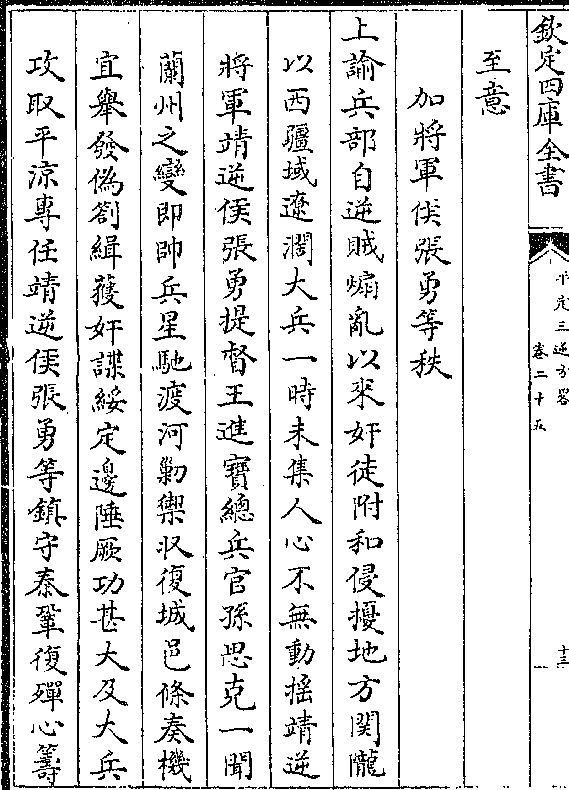 欽定四庫全書
平定三逆方畧
卷二十五
十三
至意
加將軍侯張勇等秩
上諭兵部自逆賊煽亂以來奸徒附和侵擾地方関隴
以西疆域遼濶大兵一時未集人心不無動揺靖逆
將軍靖逆侯張勇提督王進寶總兵官孫思克一聞
蘭州之變即帥兵星馳渡河勦禦收復城邑條奏機
宜舉發偽劄緝獲奸諜綏定邊陲厥功甚大及大兵
攻取平涼專任靖逆侯張勇等鎮守秦鞏復殫心籌